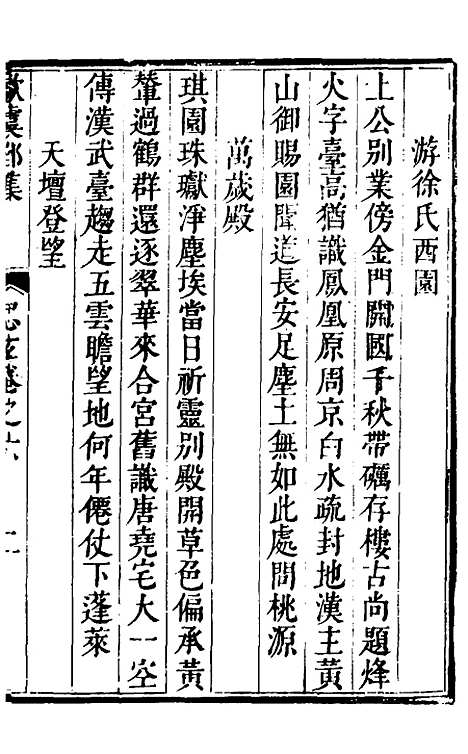 游徐氏西園
上公别業傍金門開國千秋帶礪存樓古尚題烽
火字臺高猶識鳳凰原周京白水疏封地漢主黃
山御賜園聞道長安足塵土無如此處問桃源
萬歲殿
琪園珠巘淨塵埃當日祈靈别殿開草色偏承黃
輦過鶴群還逐翠華來合宮舊識唐堯宅大一空
傳漢武臺趨走五雲瞻望地何年僊仗下蓬萊
天壇登望
集
卷之六